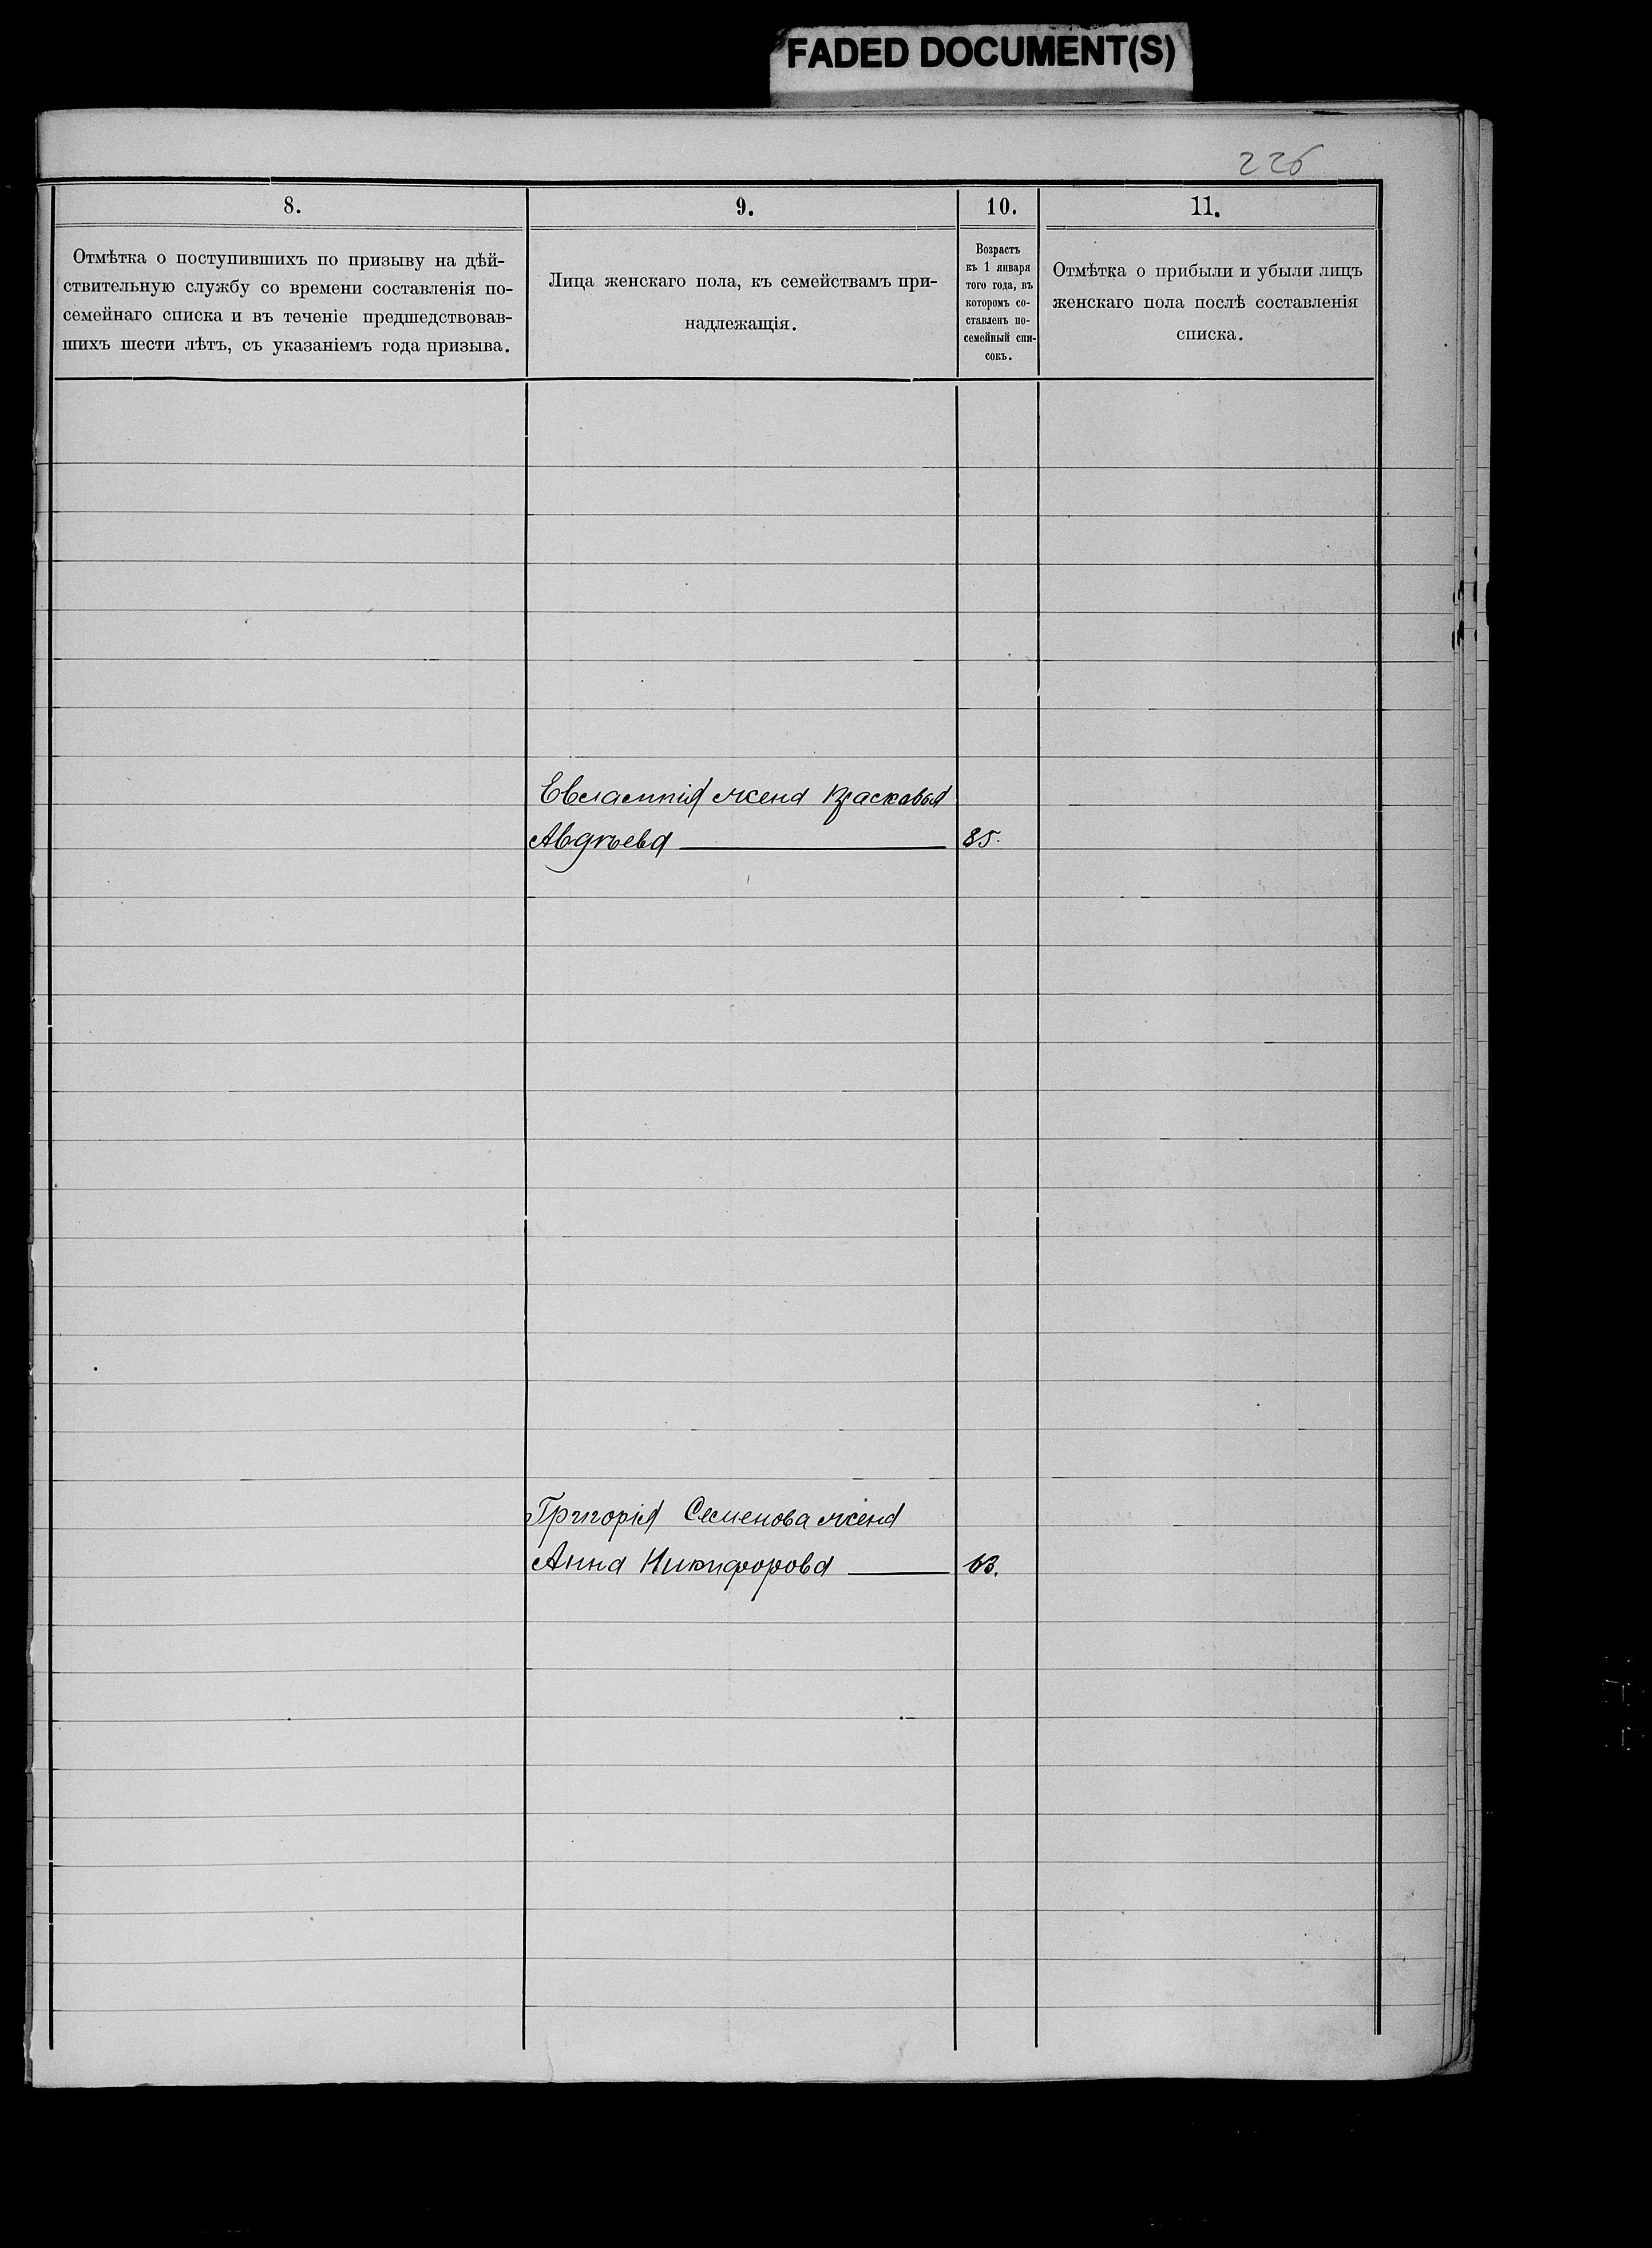 FADED DOCUMENT(S)
226
8.
9.
10.
11.
Отмѣтка о поступившихъ по призыву на дѣй-
ствительную службу со времени составленія по-
семейнаго списка и въ теченіе предшедствовав-
шихъ шести лѣтъ, съ указаніемъ года призыва.
Лица женскаго пола, къ семействамъ при-
надлежащія.
Возрастъ
къ 1 января
того года, въ
которомъ со-
ставленъ по-
семейный спи-
сокъ.
Отмѣтка о прибыли и убыли лицъ
женскаго пола послѣ составленія
списка.
Евлампія жена Прасковья
Авдѣева 85.
Григорія Семенова жена
Анна Никифорова 63.